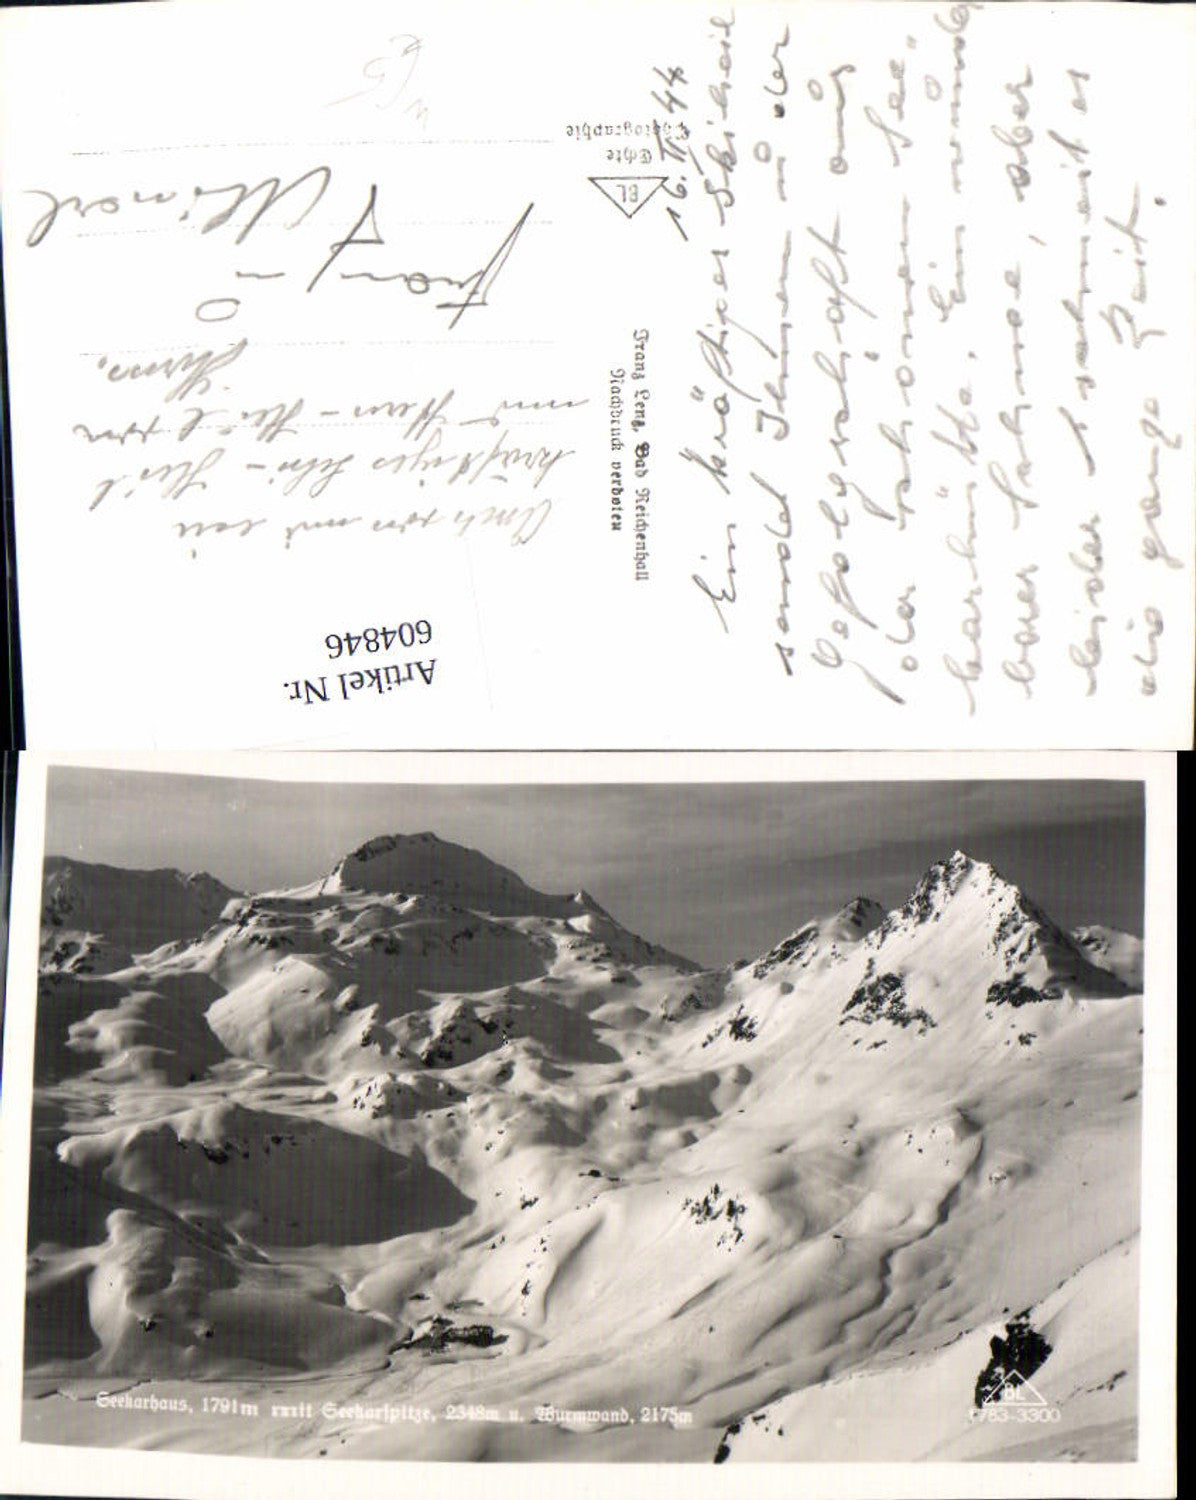 16. II. 44
Ein kräftiges Skiheil
sendet Ihnen u der
Gefolgschaft aus
der schönen See„
karhütte. Ein wunder
barer Schnee, aber
leider schneit es
die ganze Zeit.
Auch von mir ein
kräftiges Schi-Heil
und
von
Franz
BL
Echte
Photographie
Franz Lenz, Bad Reichenhall
Nachdruck verboten
Artikel Nr.
604846
Seekarhaus, 1791m mit Seekarspitze, 2348m u. Wurmwand, 2175m
BL
1783-3300